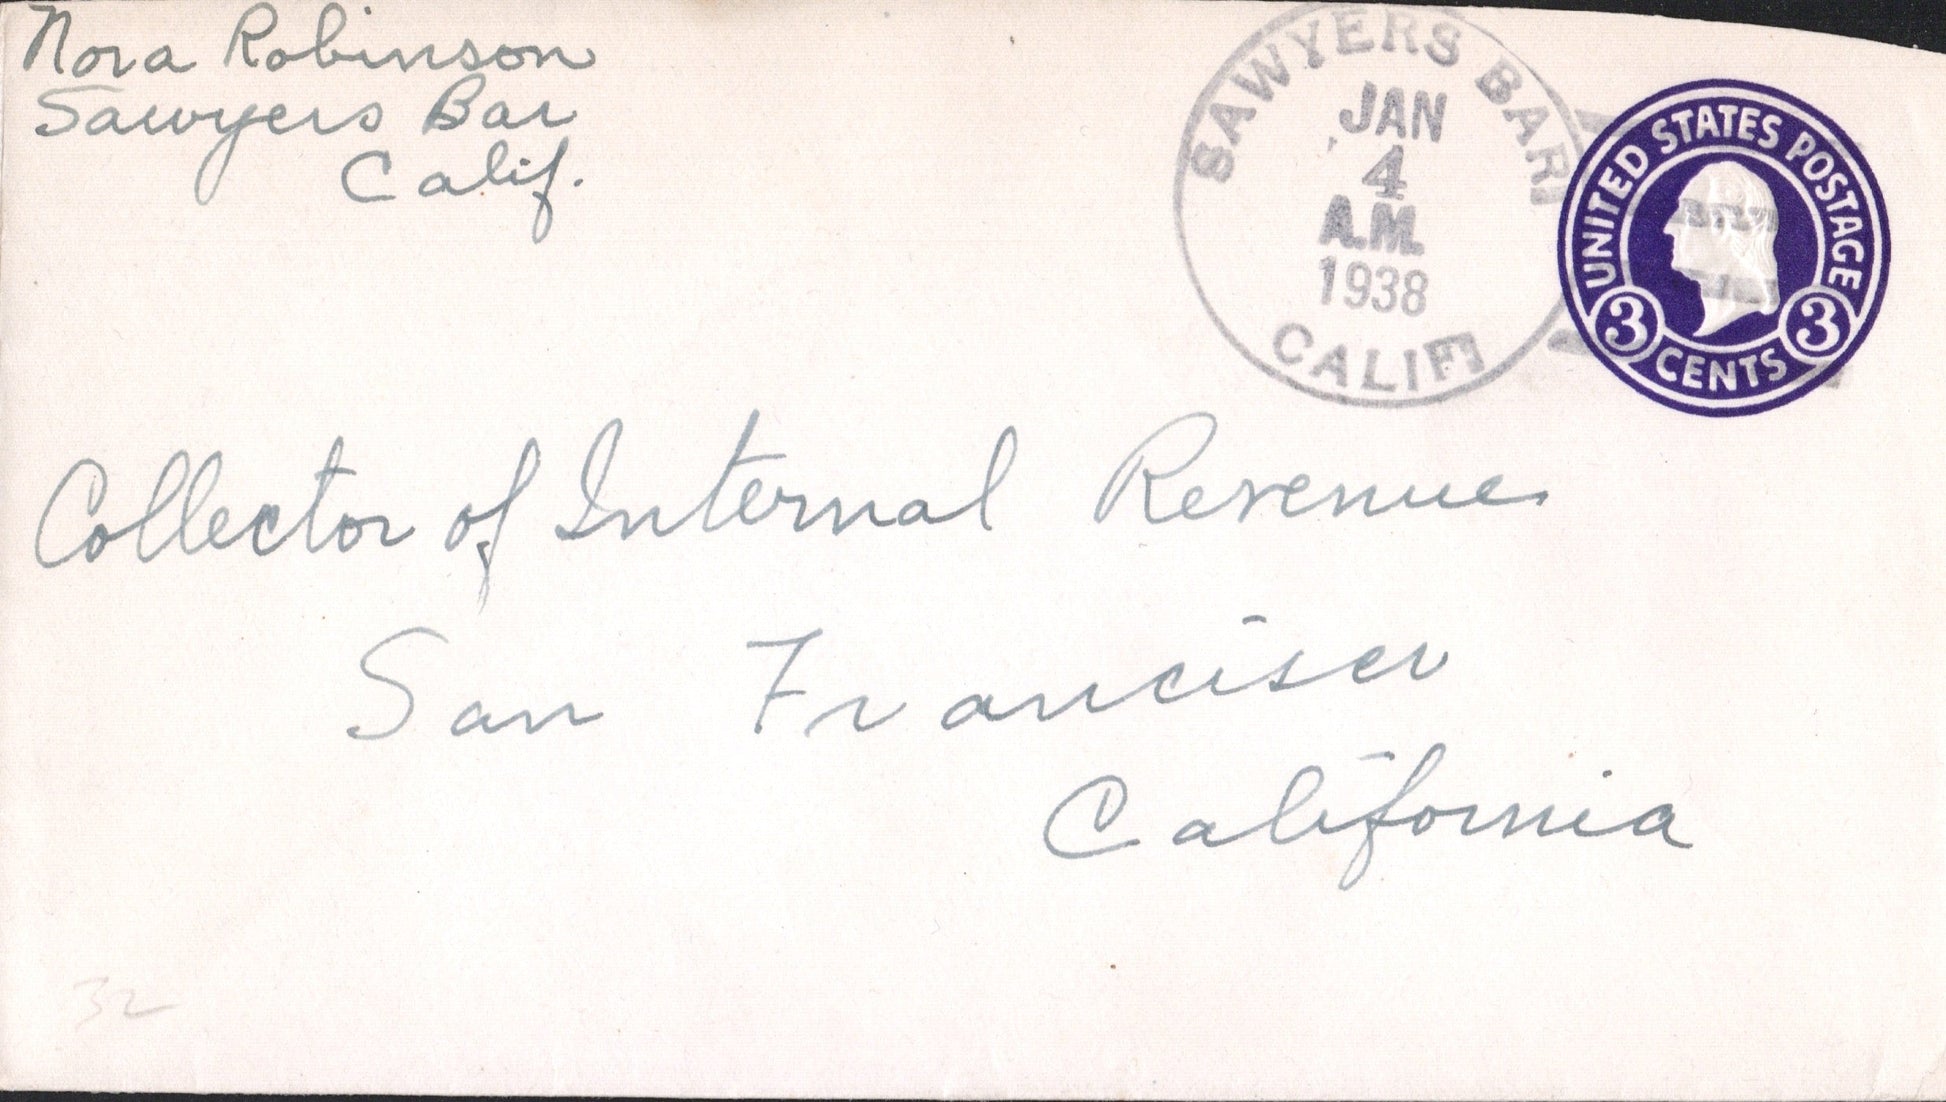 Nora Robinson
Sawyers Bar
Calif.
SAWYERS BAR
JAN
4
A.M.
1938
CALIF
UNITED STATES POSTAGE
3 CENTS 3
Collector of Internal Revenue
San Francisco
California
32